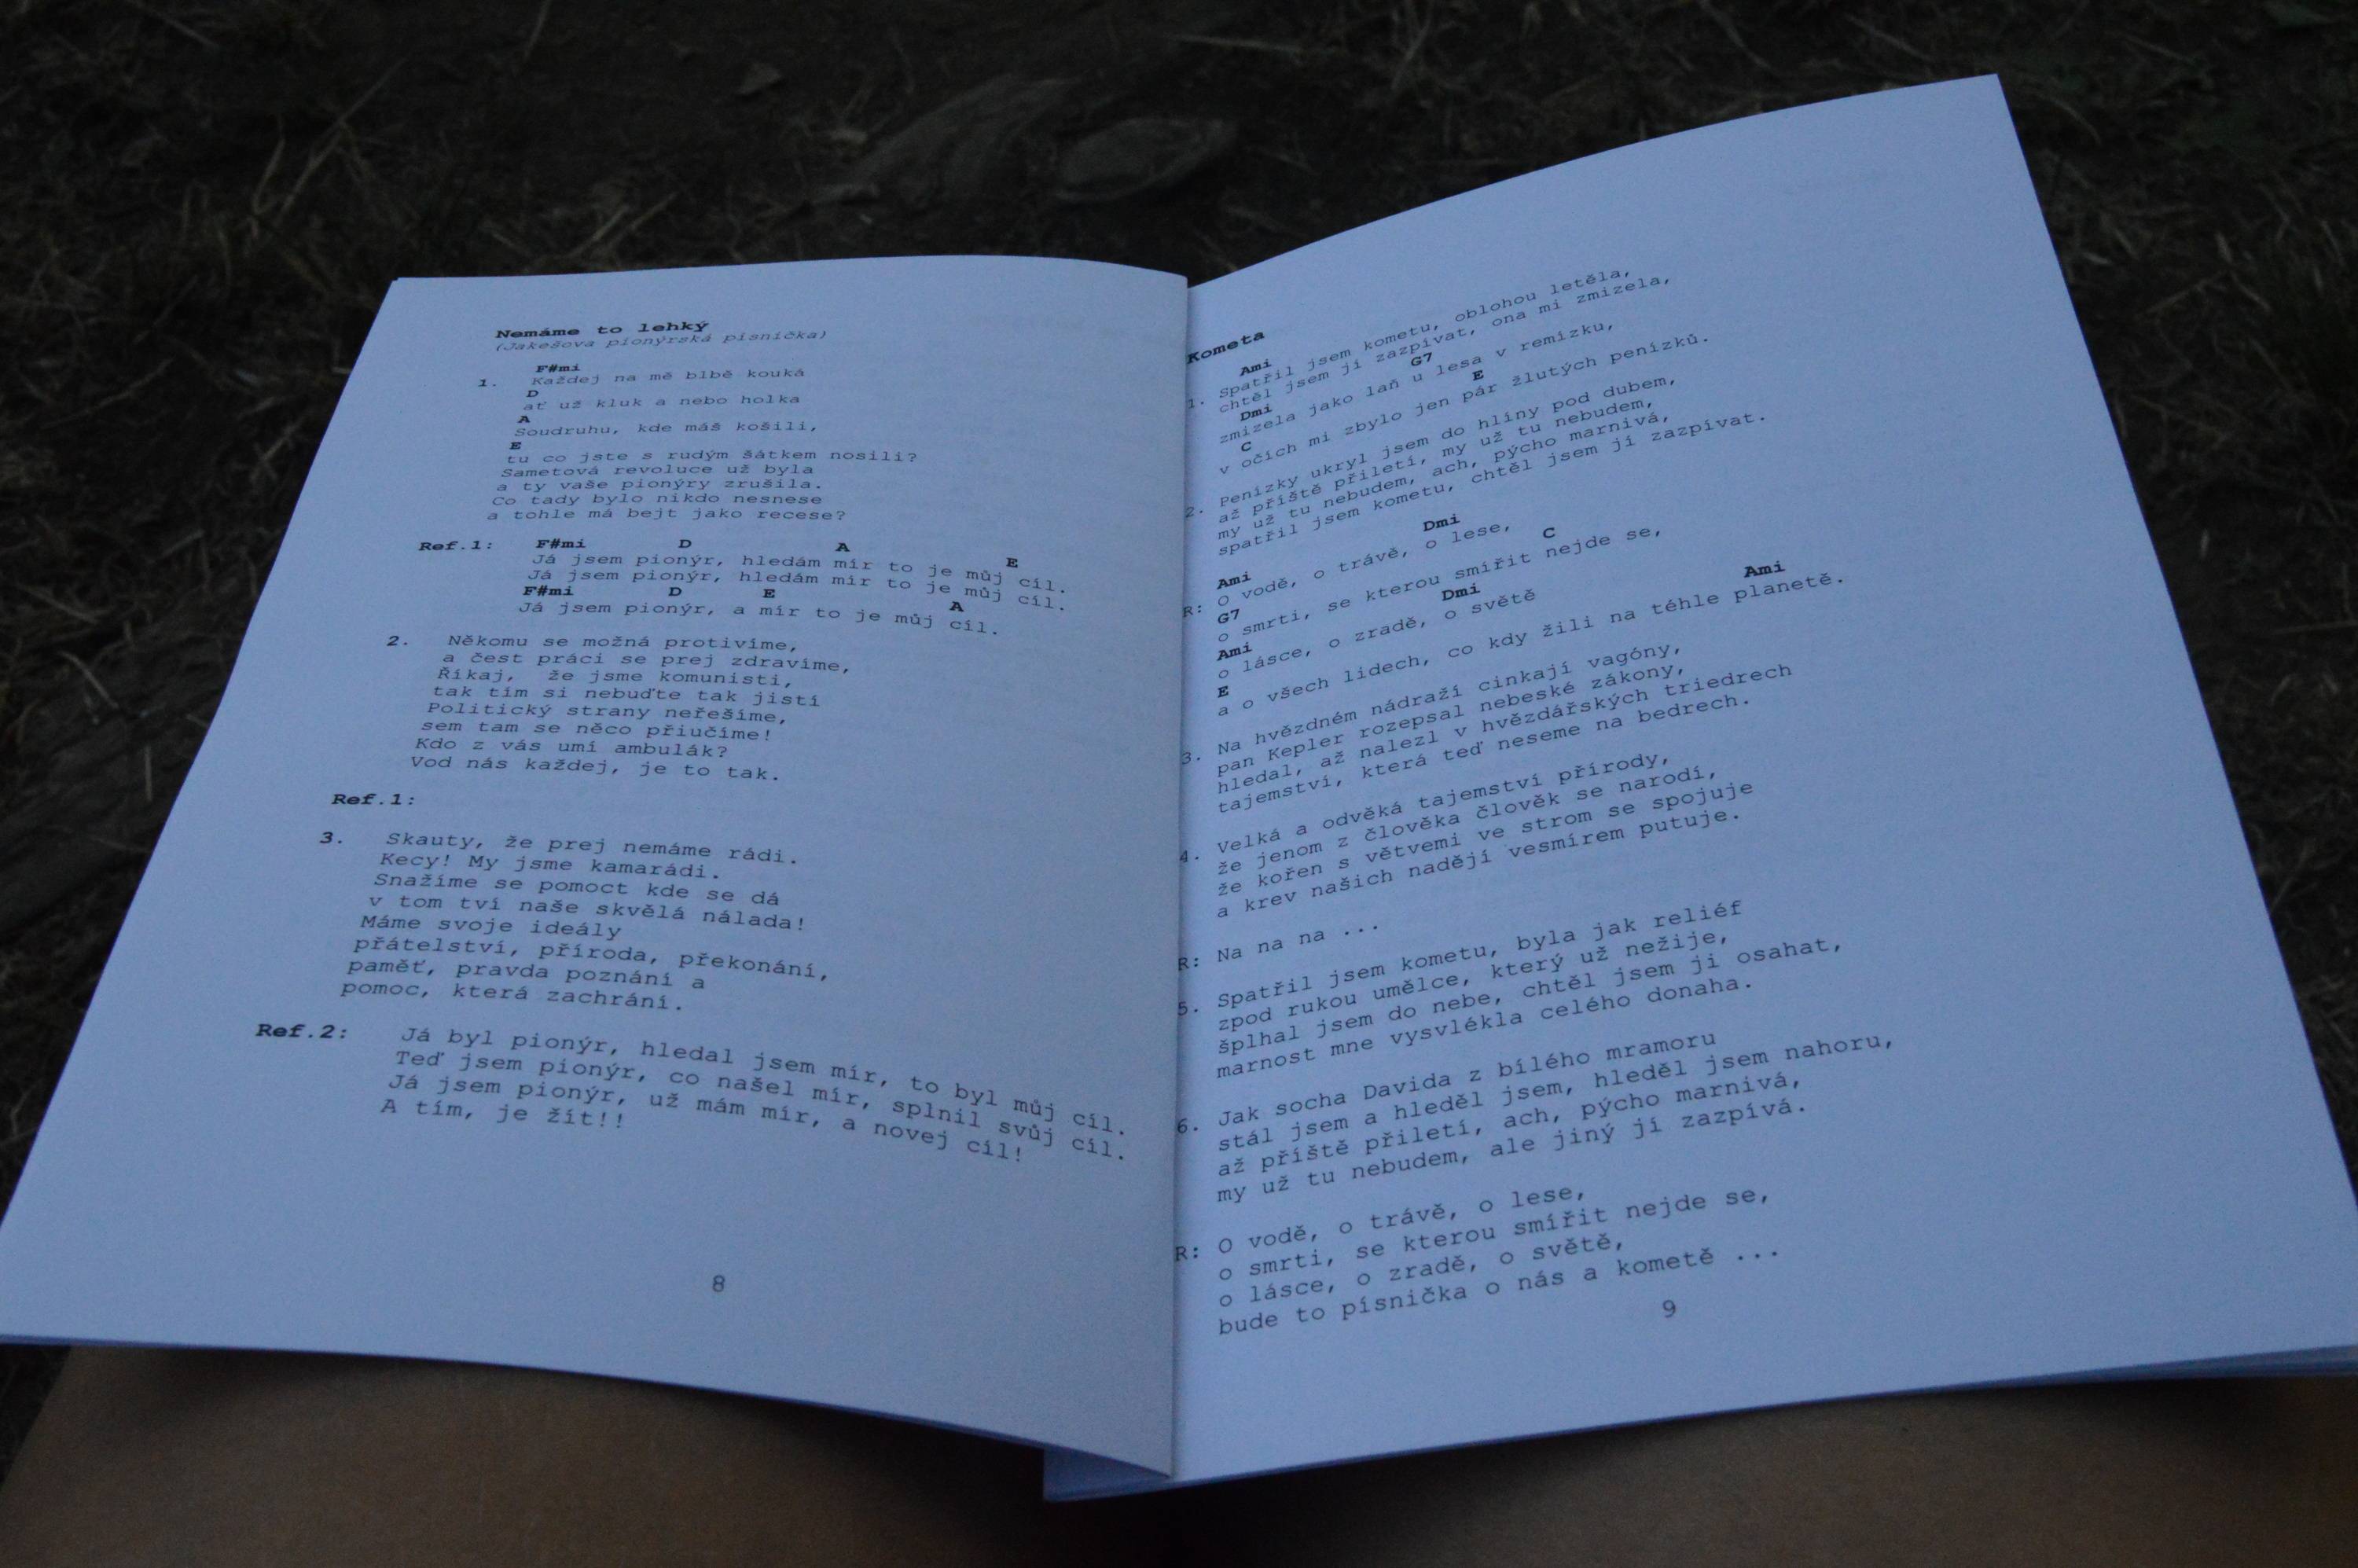 Nemáme to lehký
(Jakešova pionýrská písnička)
F#mi
1. Každej na mě blbě kouká
D
ať už kluk a nebo holka
A
Soudruhu, kde máš košili,
E
tu co jste s rudým šátkem nosili?
Sametová revoluce už byla
a ty vaše pionýry zrušila.
Co tady bylo nikdo nesnese
a tohle má bejt jako recese?
Ref.1: F#mi D A E
Já jsem pionýr, hledám mír to je můj cíl.
Já jsem pionýr, hledám mír to je můj cíl.
F#mi D E A
Já jsem pionýr, a mír to je můj cíl.
2. Někomu se možná protivíme,
a čest práci se prej zdravíme,
Říkaj, že jsme komunisti,
tak tím si nebuďte tak jistí
Politický strany neřešíme,
sem tam se něco přiučíme!
Kdo z vás umí ambulák?
Vod nás každej, je to tak.
Ref.1:
3. Skauty, že prej nemáme rádi.
Kecy! My jsme kamarádi.
Snažíme se pomoct kde se dá
v tom tví naše skvělá nálada!
Máme svoje ideály
přátelství, příroda, překonání,
paměť, pravda poznání a
pomoc, která zachrání.
Ref.2: Já byl pionýr, hledal jsem mír, to byl můj cíl.
Teď jsem pionýr, co našel mír, splnil svůj cíl.
Já jsem pionýr, už mám mír, a novej cíl!
A tím, je žít!!
8
Kometa
Ami
1. Spatřil jsem kometu, oblohou letěla,
chtěl jsem jí zazpívat, ona mi zmizela,
Dmi G7
zmizela jako laň u lesa v remízku,
C E
v očích mi zbylo jen pár žlutých penízků.
2. Penízky ukryl jsem do hlíny pod dubem,
až příště přiletí, my už tu nebudem,
my už tu nebudem, ach, pýcho marnivá,
spatřil jsem kometu, chtěl jsem jí zazpívat.
Ami Dmi
R: O vodě, o trávě, o lese,
G7 C
o smrti, se kterou smířit nejde se,
Ami Dmi
o lásce, o zradě, o světě
E Ami
a o všech lidech, co kdy žili na téhle planetě.
3. Na hvězdném nádraží cinkají vagóny,
pan Kepler rozepsal nebeské zákony,
hledal, až nalezl v hvězdářských triedrech
tajemství, která teď neseme na bedrech.
4. Velká a odvěká tajemství přírody,
že jenom z člověka člověk se narodí,
že kořen s větvemi ve strom se spojuje
a krev našich nadějí vesmírem putuje.
R: Na na na ...
5. Spatřil jsem kometu, byla jak reliéf
zpod rukou umělce, který už nežije,
šplhal jsem do nebe, chtěl jsem ji osahat,
marnost mne vysvlékla celého donaha.
6. Jak socha Davida z bílého mramoru
stál jsem a hleděl jsem, hleděl jsem nahoru,
až příště přiletí, ach, pýcho marnivá,
my už tu nebudem, ale jiný jí zazpívá.
R: O vodě, o trávě, o lese,
o smrti, se kterou smířit nejde se,
o lásce, o zradě, o světě,
bude to písnička o nás a kometě ...
9